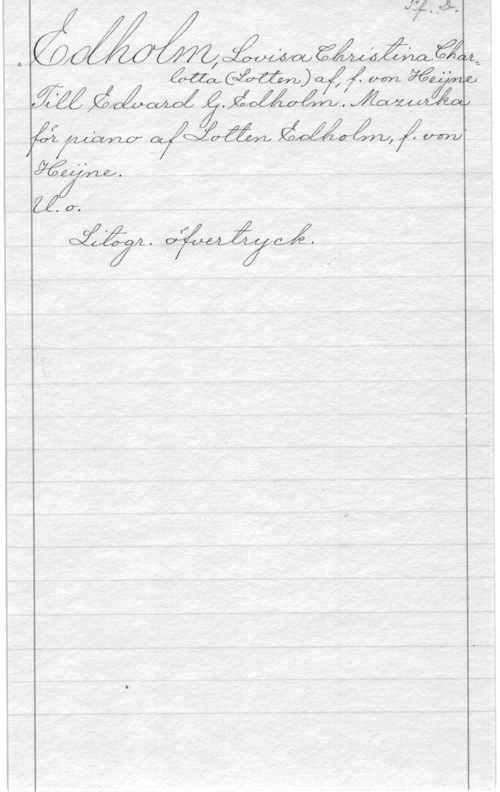 Edholm, Lovisa Christina Char-
lotta (Lotten) af, f. von Heijne
Till Edvard G. Edholm. Mazurka
för piano af Lotten Edholm, f. von
Heijne.
U. o.
Litogr. öfvertryck.